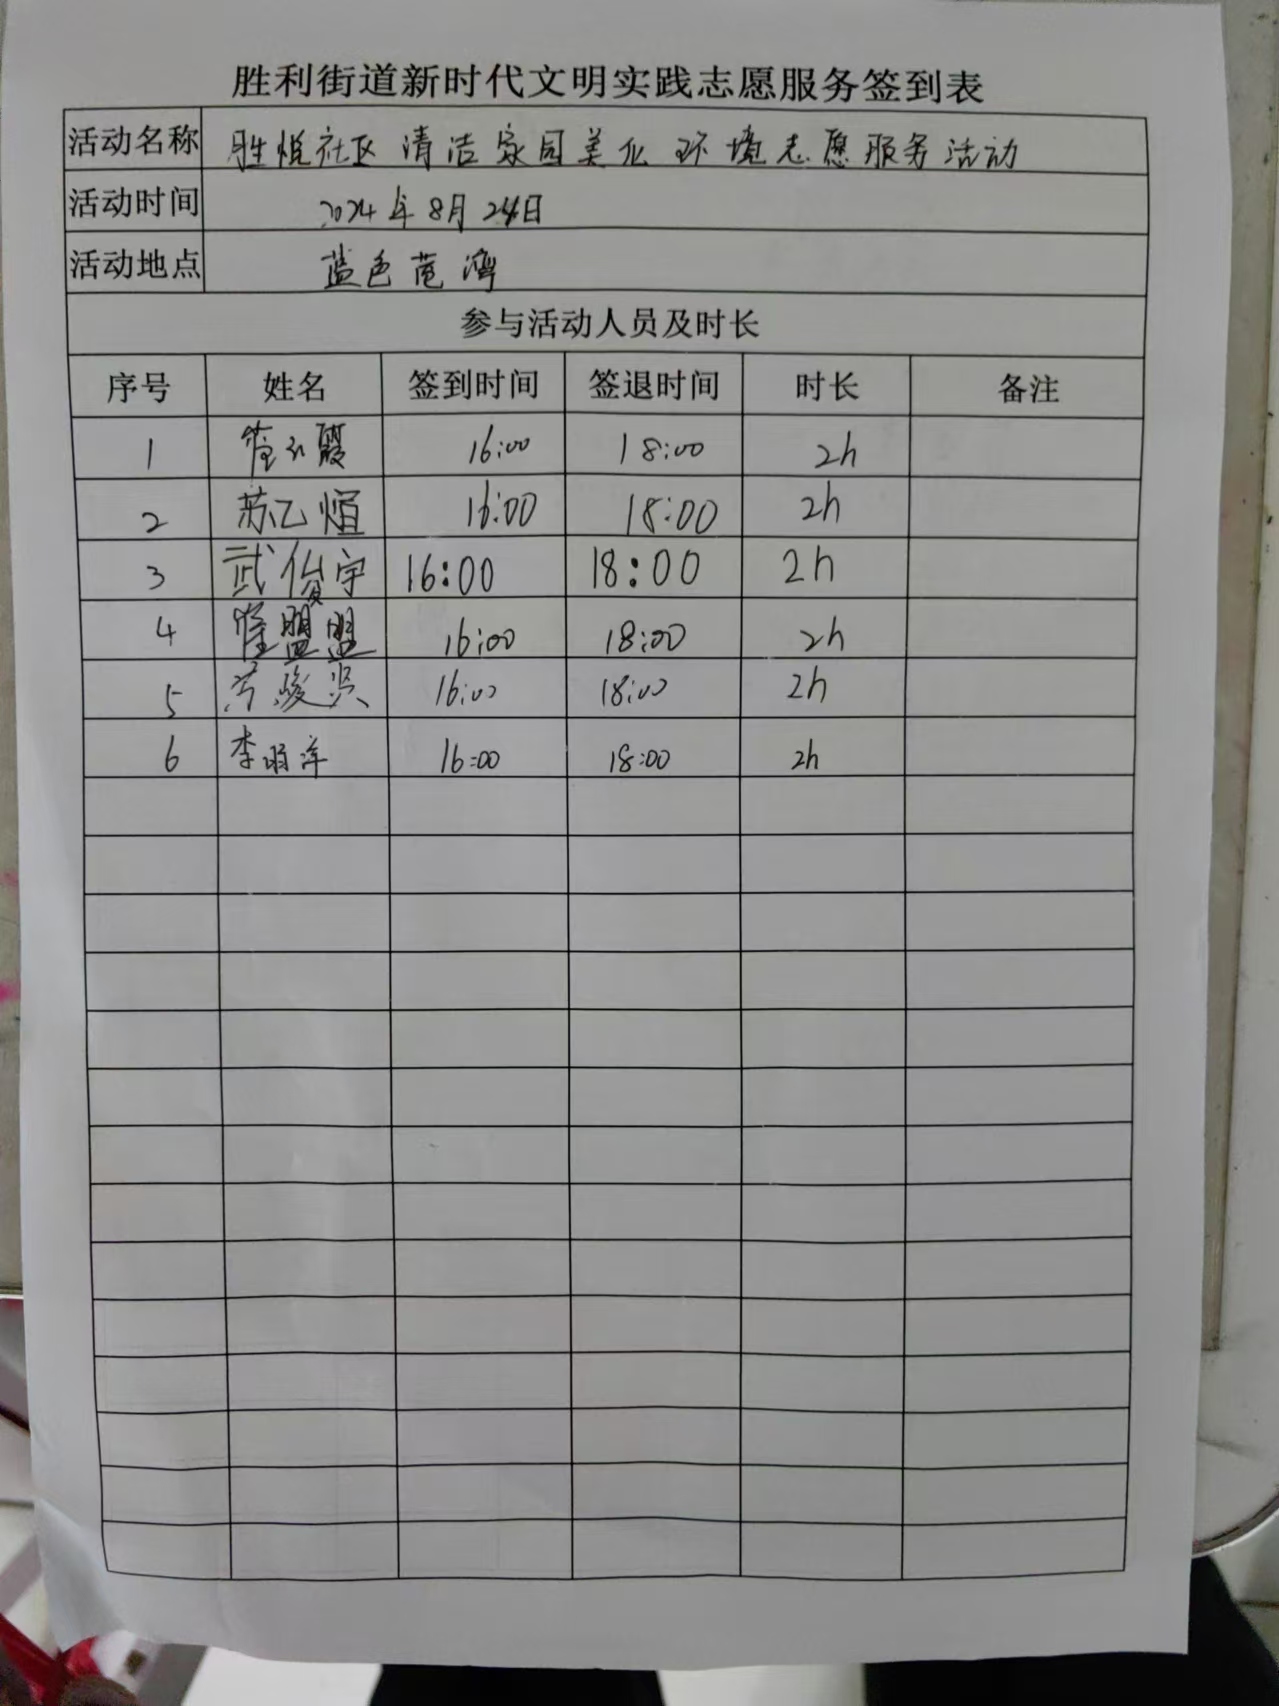 胜利街道新时代文明实践志愿服务签到表
活动名称 胜悦社区清洁家园美化环境志愿服务活动
活动时间 2024年8月24日
活动地点 蓝色
参与活动人员及时长
序号 姓名 签到时间 签退时间 时长 备注
1 16:00 18:00 2h
2 苏乙煊 16:00 18:00 2h
3 武俊宇 16:00 18:00 2h
4 盟盟 16:00 18:00 2h
5 16:00 18:00 2h
6 李 洋 16:00 18:00 2h